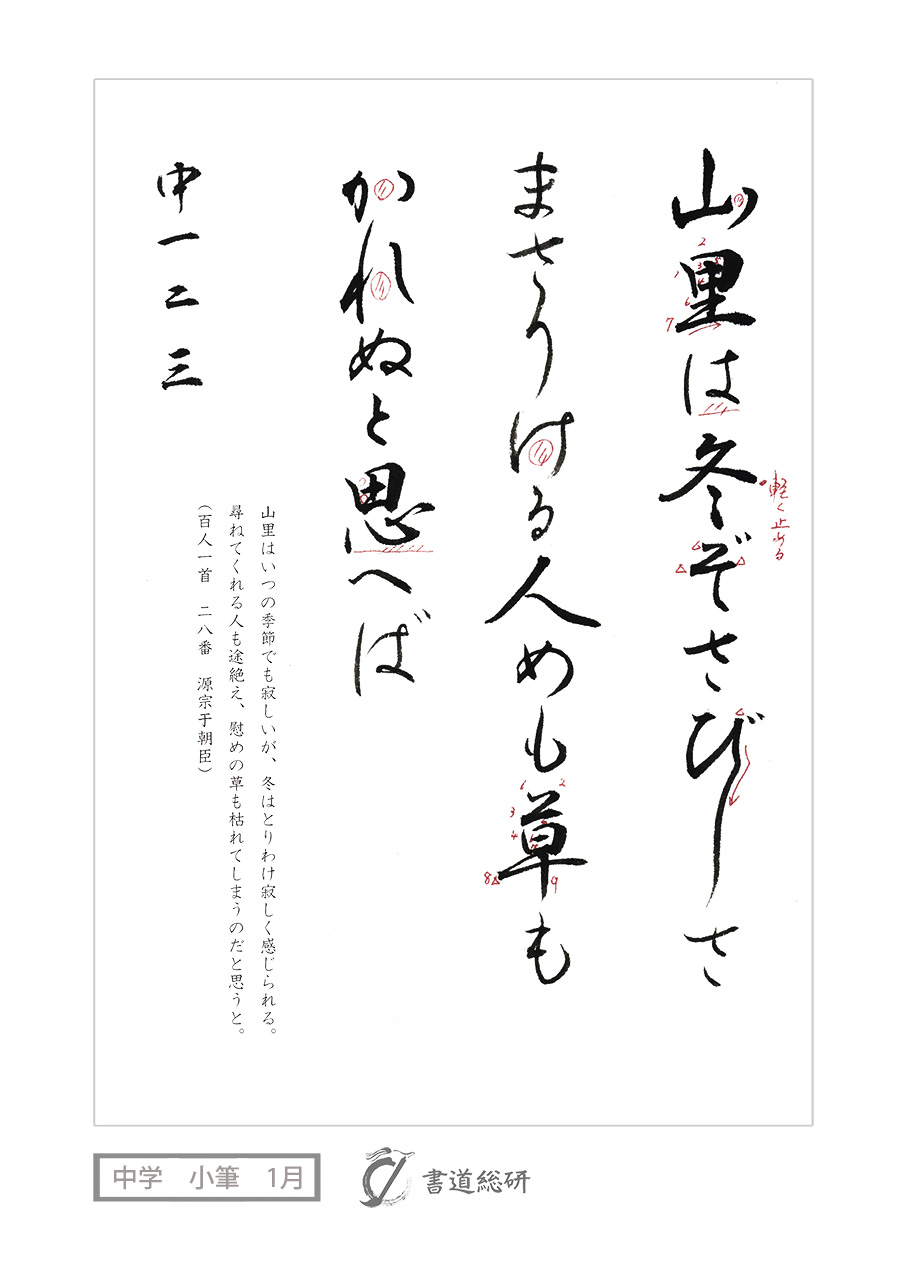 山里は冬ぞさびしさ
軽く止める
まさりける人めも草も
かれぬと思へば
中一二三
山里はいつの季節でも寂しいが、冬はとりわけ寂しく感じられる。
尋ねてくれる人も途絶え、慰めの草も枯れてしまうのだと思うと。
(百人一首 二八番 源宗于朝臣)
中学 小筆 1月
書道総研